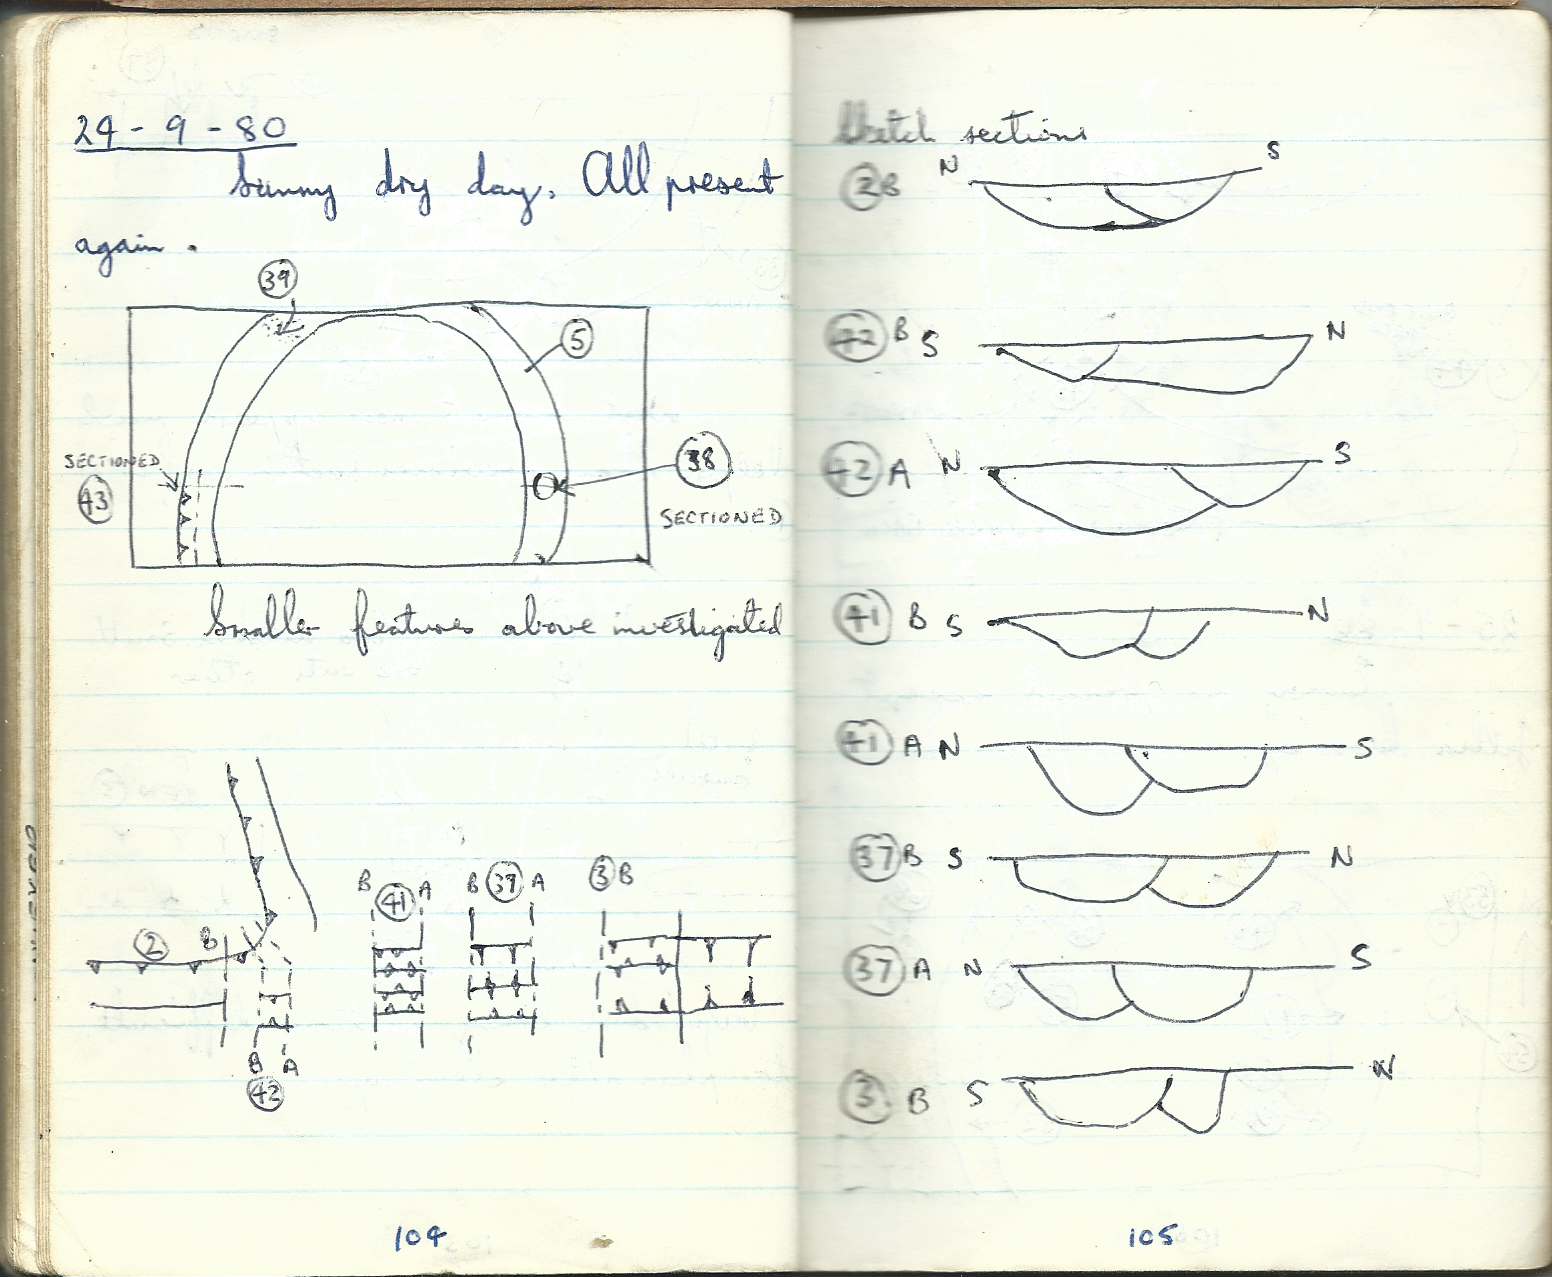 24 - 9 - 80
Sunny dry day. All present
again.
39
5
SECTIONED
43
38
SECTIONED
Smaller features above investigated
2 B
B A
42
B 41 A
B 39 A
3 B
104
Sketch sections
2B N S
42 B S N
42 A N S
41 B S N
41 A N S
37 B S N
37 A N S
3 B S N
105